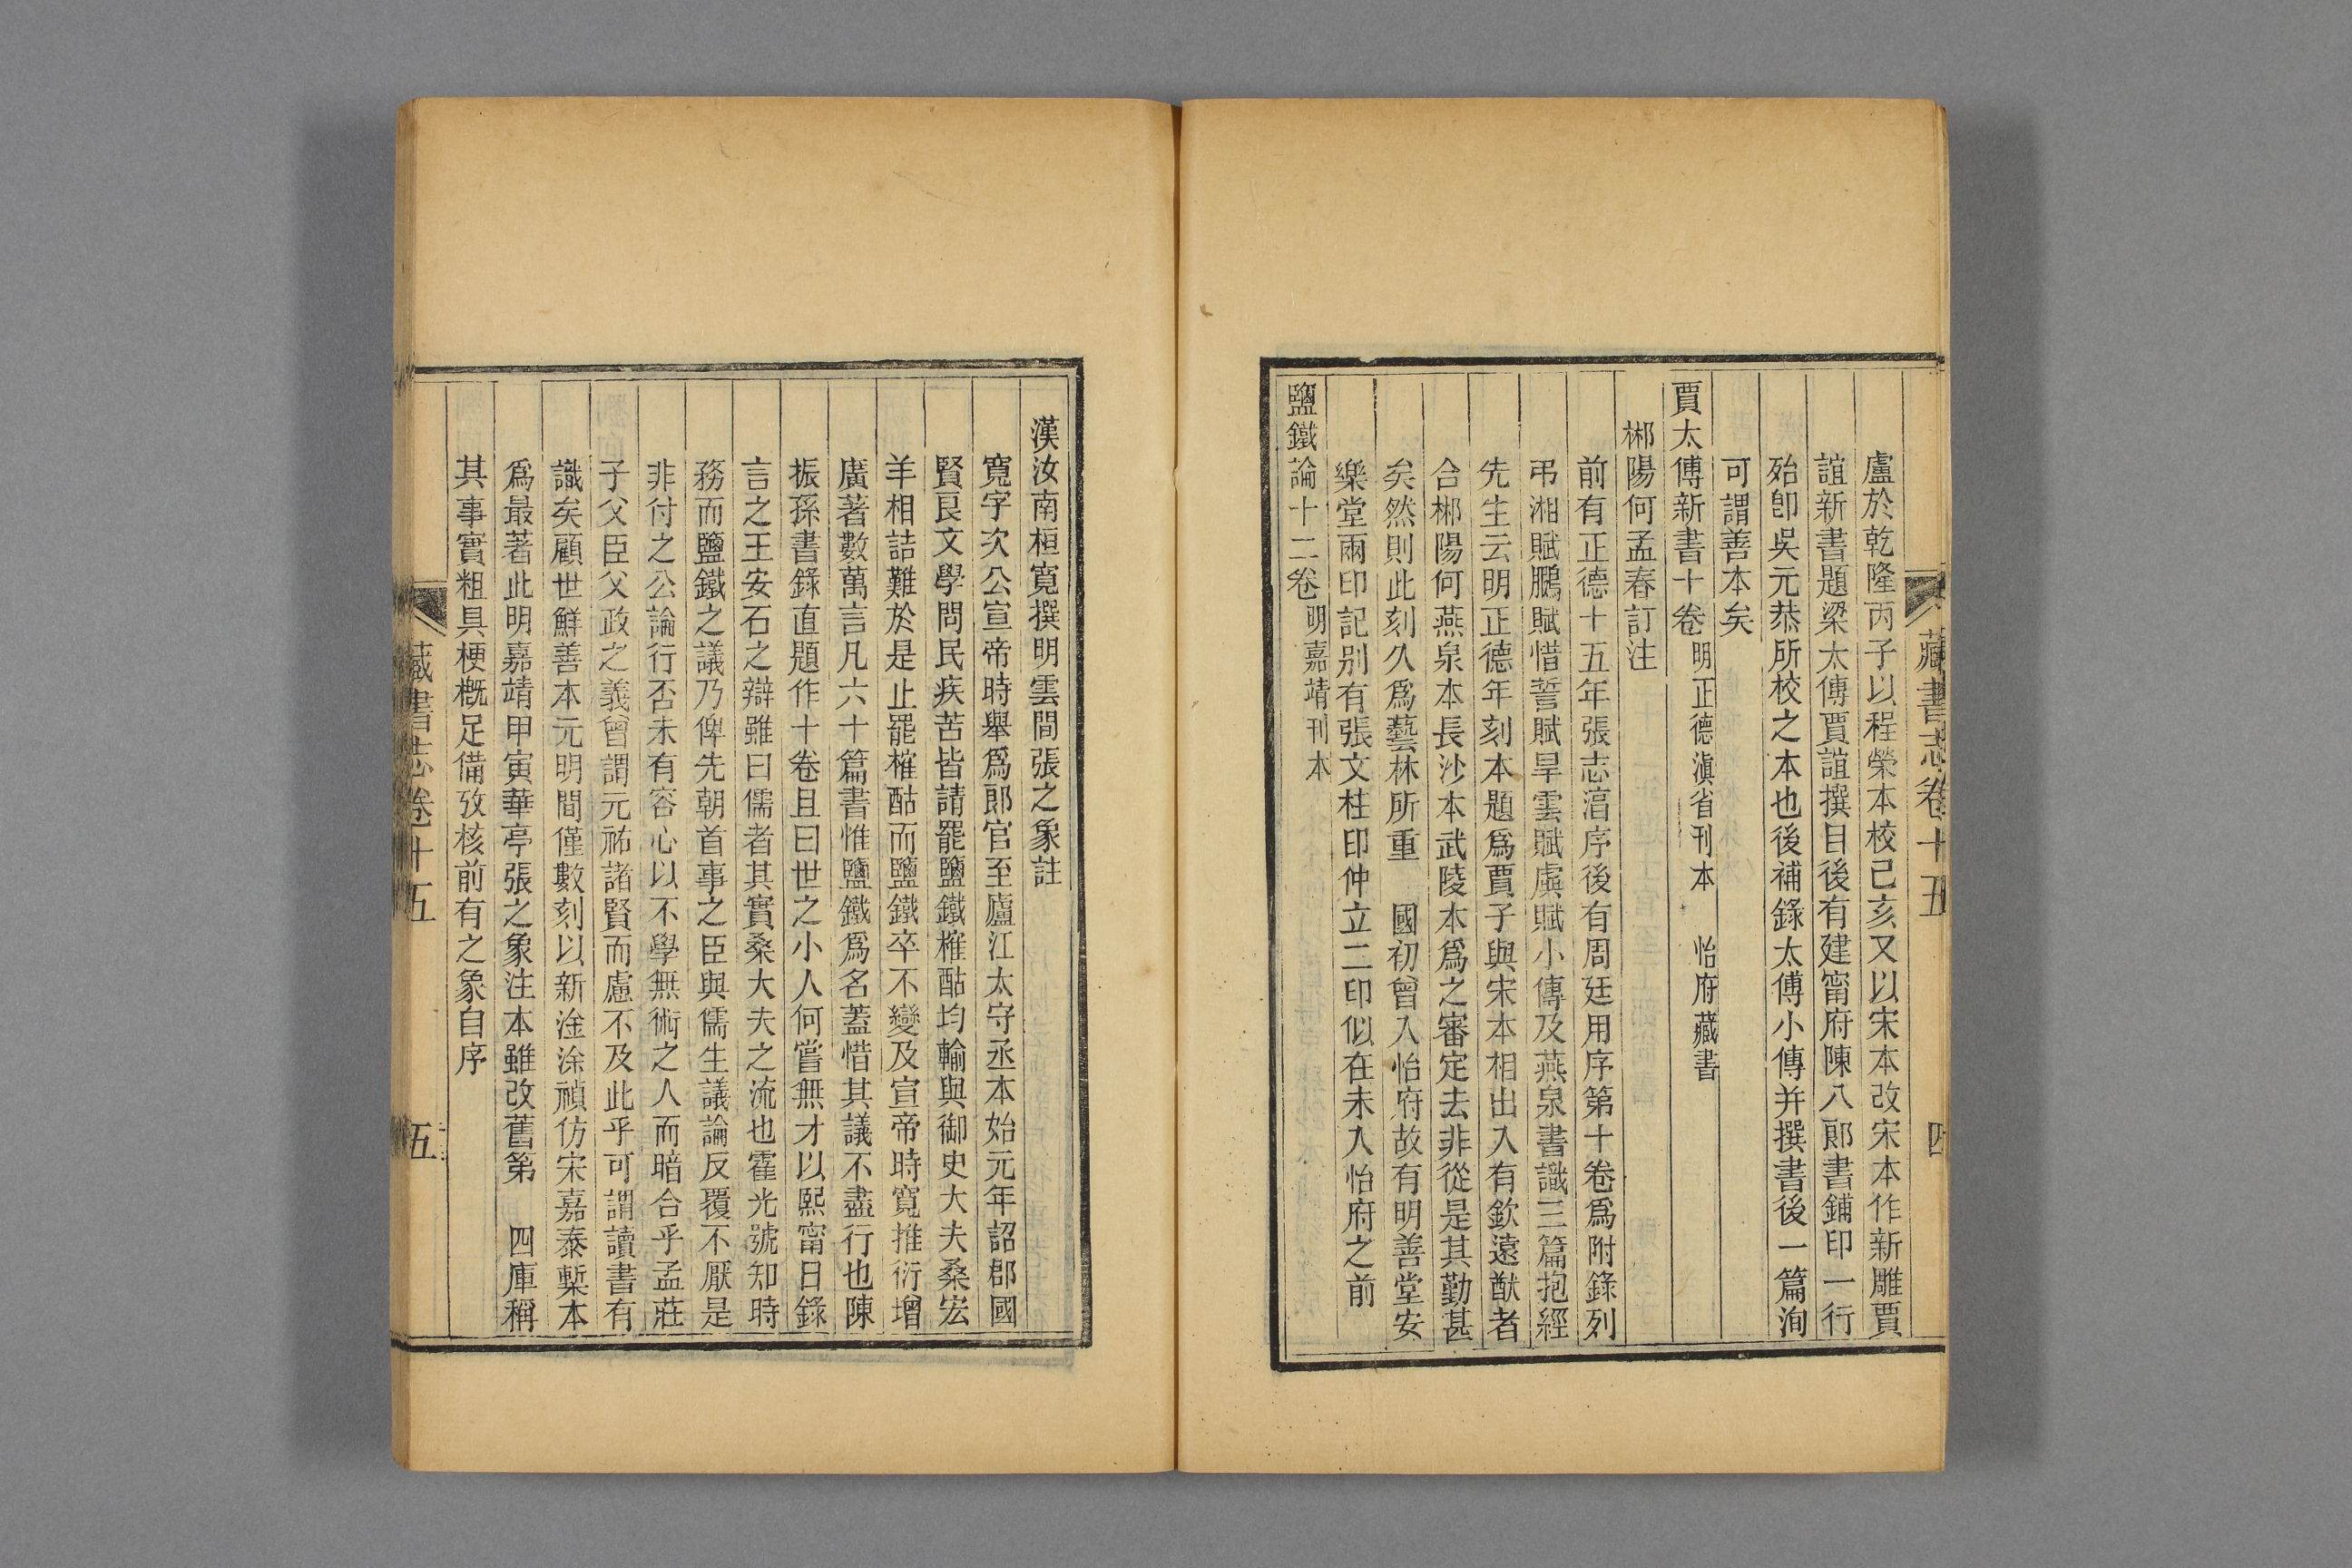 藏書志卷十五
四
盧於乾隆丙子以程榮本校己亥又以宋本改宋本作新雕賈
誼新書題梁太傅賈誼撰目後有建甯府陳八郎書鋪印一行
殆卽吳元恭所校之本也後補錄太傅小傳并撰書後一篇洵
可謂善本矣
賈太傅新書十卷 明正德滇省刊本 怡府藏書
郴陽何孟春訂注
前有正德十五年張志淯序後有周廷用序第十卷爲附錄列
弔湘賦鵩賦惜誓賦旱雲賦虡賦小傳及燕泉書識三篇抱經
先生云明正德年刻本題爲賈子與宋本相出入有欽遠猷者
合郴陽何燕泉本長沙本武陵本爲之審定去非從是其勤甚
矣然則此刻久爲藝林所重 國初曾入怡府故有明善堂安
樂堂兩印記别有張文柱印仲立二印似在未入怡府之前
鹽鐵論十二卷 明嘉靖刊本
漢汝南桓寬撰明雲間張之象註
寬字次公宣帝時舉爲郎官至廬江太守丞本始元年詔郡國
賢良文學問民疾苦皆請罷鹽鐵榷酤均輸與御史大夫桑宏
羊相詰難於是止罷榷酤而鹽鐵卒不變及宣帝時寬推衍增
廣著數萬言凡六十篇書惟鹽鐵爲名蓋惜其議不盡行也陳
振孫書錄直題作十卷且曰世之小人何嘗無才以熙甯日錄
言之王安石之辯雖曰儒者其實桑大夫之流也霍光號知時
務而鹽鐵之議乃俾先朝首事之臣與儒生議論反覆不厭是
非付之公論行否未有容心以不學無術之人而暗合乎孟莊
子父臣父政之義曾謂元祐諸賢而慮不及此乎可謂讀書有
識矣顧世鮮善本元明間僅數刻以新淦涂禎仿宋嘉泰槧本
爲最著此明嘉靖甲寅華亭張之象注本雖改舊第 四庫稱
其事實粗具梗概足備攷核前有之象自序
藏書志卷十五
五